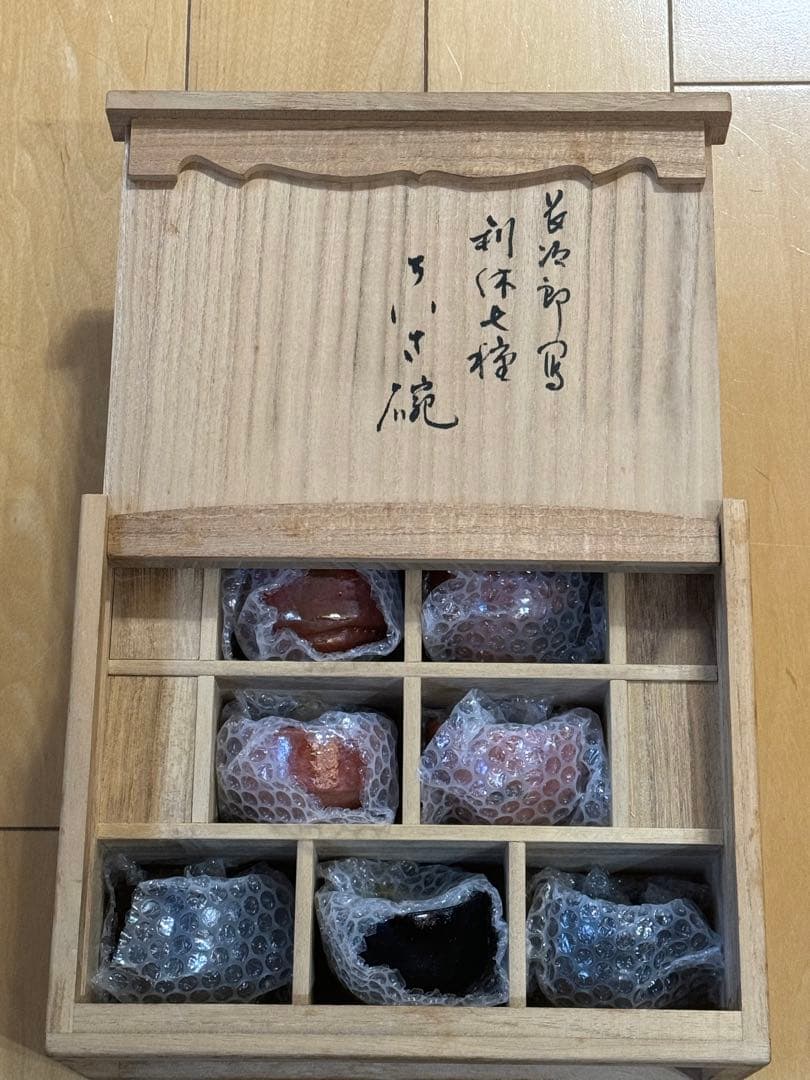 長次郎写
利休七種
ちいさ碗